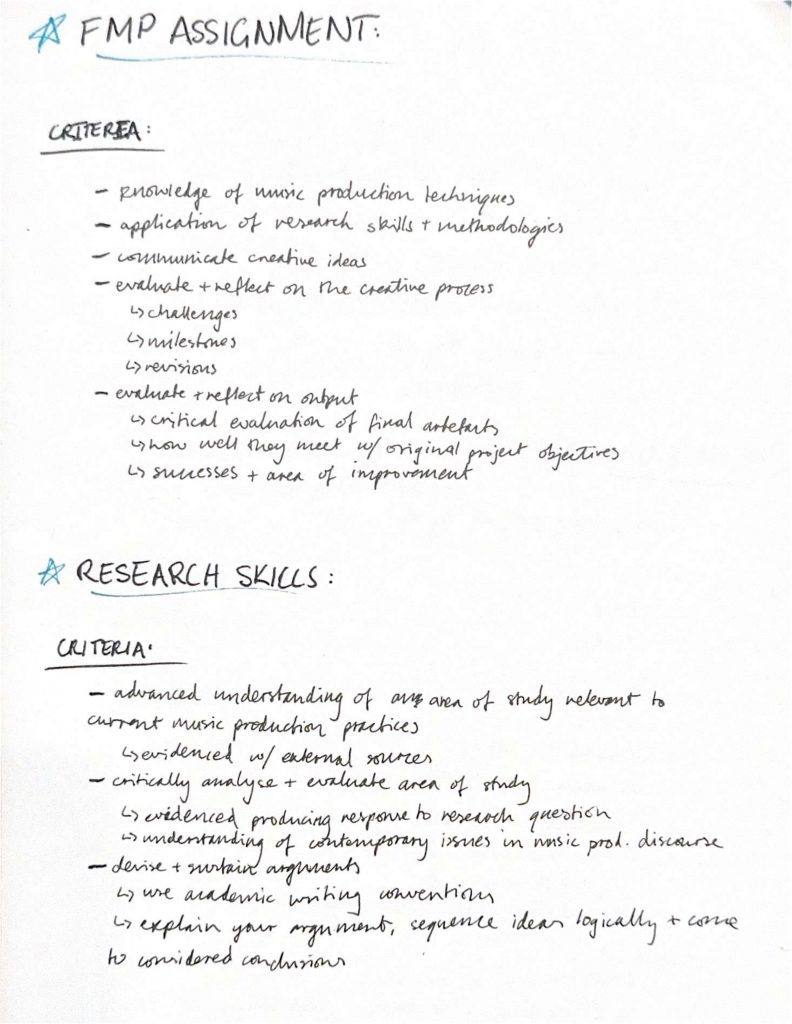 ☆ FMP ASSIGNMENT:
CRITEREA:
- knowledge of music production techniques
- application of research skills + methodologies
- communicate creative ideas
- evaluate + reflect on the creative process
↳ challenges
↳ milestones
↳ revisions
- evaluate + reflect on output
↳ critical evaluation of final artefacts
↳ how well they meet w/ original project objectives
↳ successes + area of improvement
☆ RESEARCH SKILLS:
CRITERIA:
- advanced understanding of an area of study relevant to
current music production practices
↳ evidenced w/ external sources
- critically analyse + evaluate area of study
↳ evidenced producing response to research question
↳ understanding of contemporary issues in music prod. discourse
- devise + sustain arguments
↳ use academic writing conventions
↳ explain your argument, sequence ideas logically + come
to considered conclusions